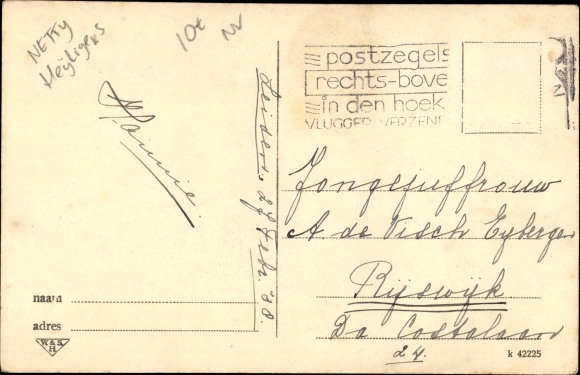 NETTY
Heyligers
10t
postzegels
rechts-bove
in den hoek
VLUGGER VERZEND
Hannie.
Jongejuffrouw
A de Visch Eyberger
Rijswijk
Da Costalaan
24.
naam
adres
W. & S.
H
k 42225